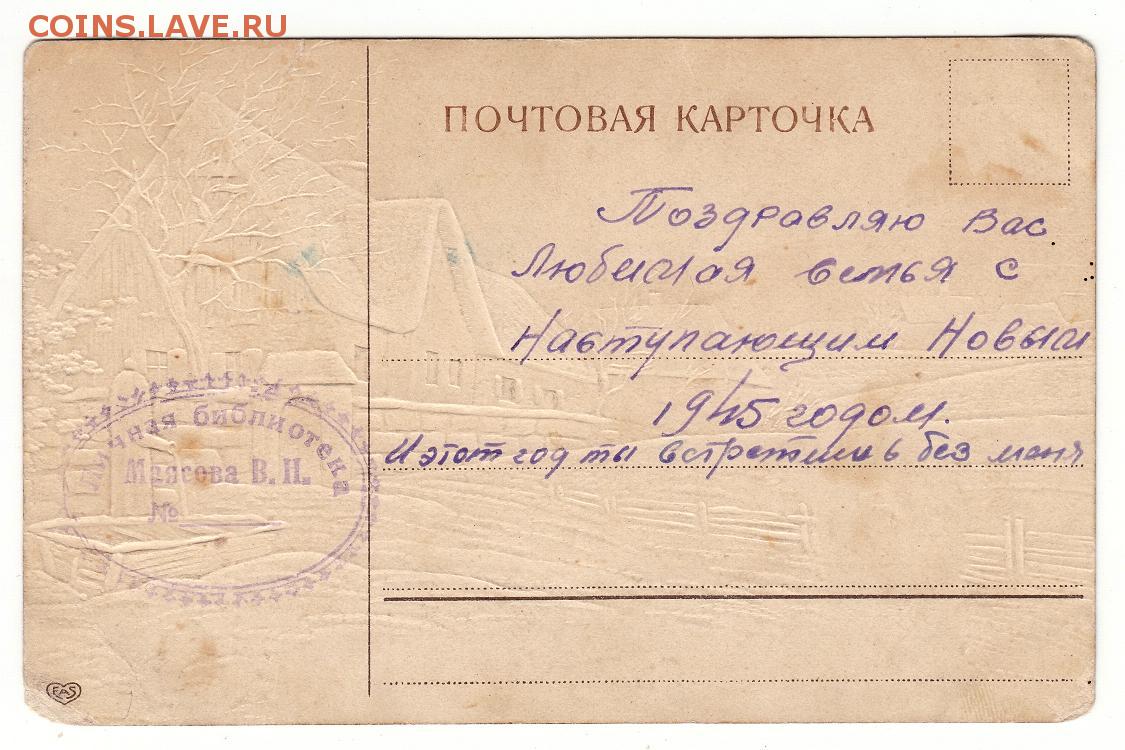 COINS.LAVE.RU
ПОЧТОВАЯ КАРТОЧКА
Поздравляю Вас
Любимая семья с
Наступающим Новым
1945 годом.
И этот год ты встретишь без меня
Личная библиотека
Маясова В. П.
№
EAS